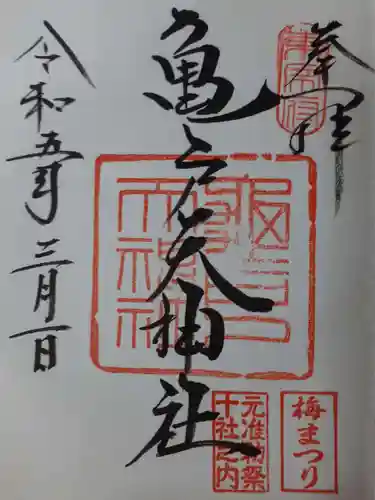 奉拝
亀戸天神社
令和五年三月一日
梅まつり
元准勅祭
十社之内